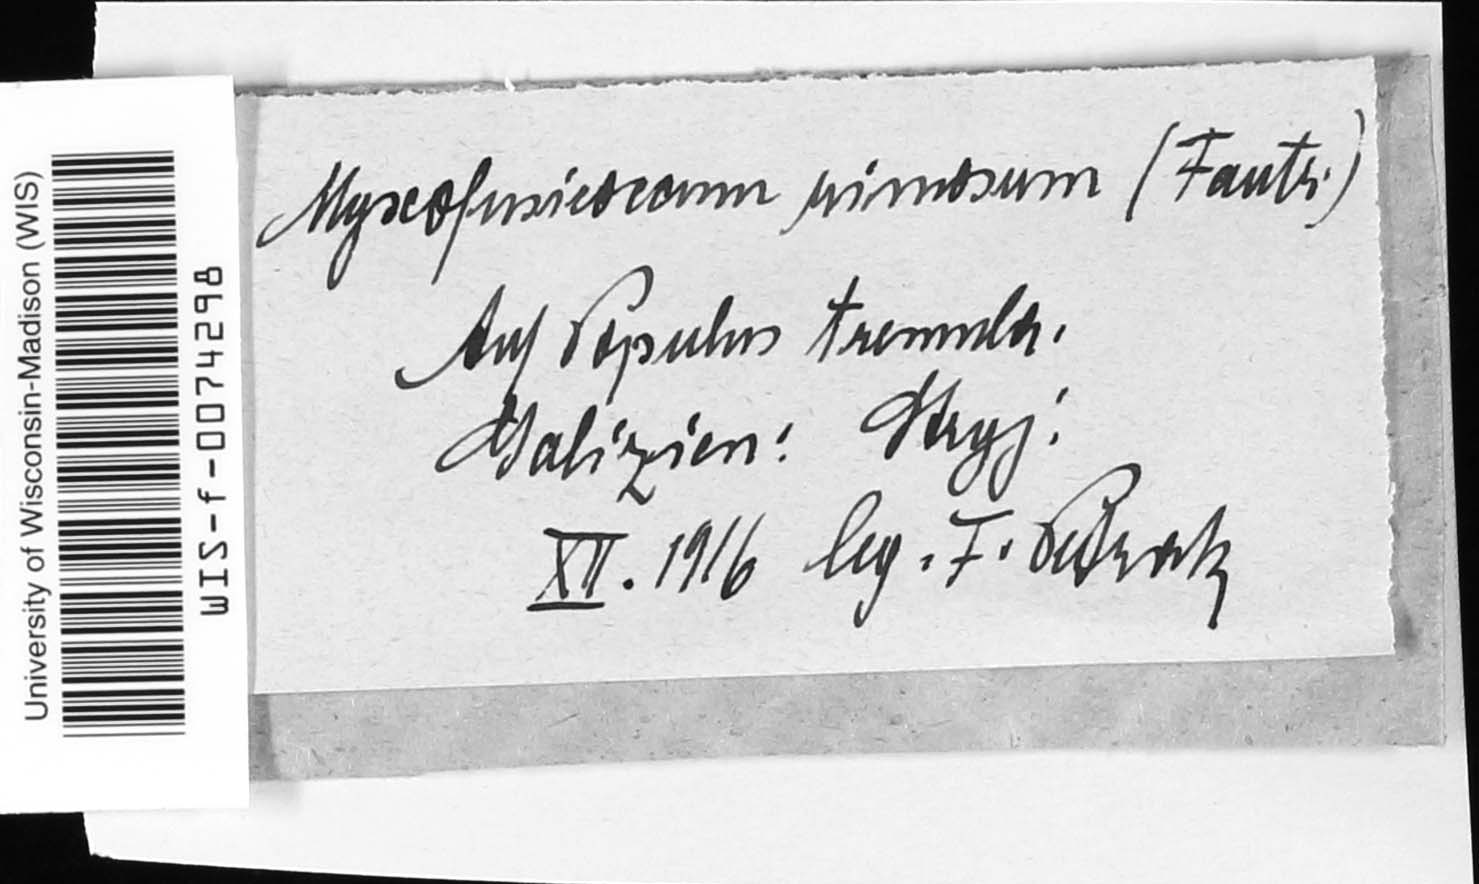 Myxofusicoccum rimosum (Fautr.)
Auf Populus tremula.
Galizien: Stryj:
XII. 1916 leg. F. Petrak
University of Wisconsin-Madison (WIS)
WIS-f-0074298